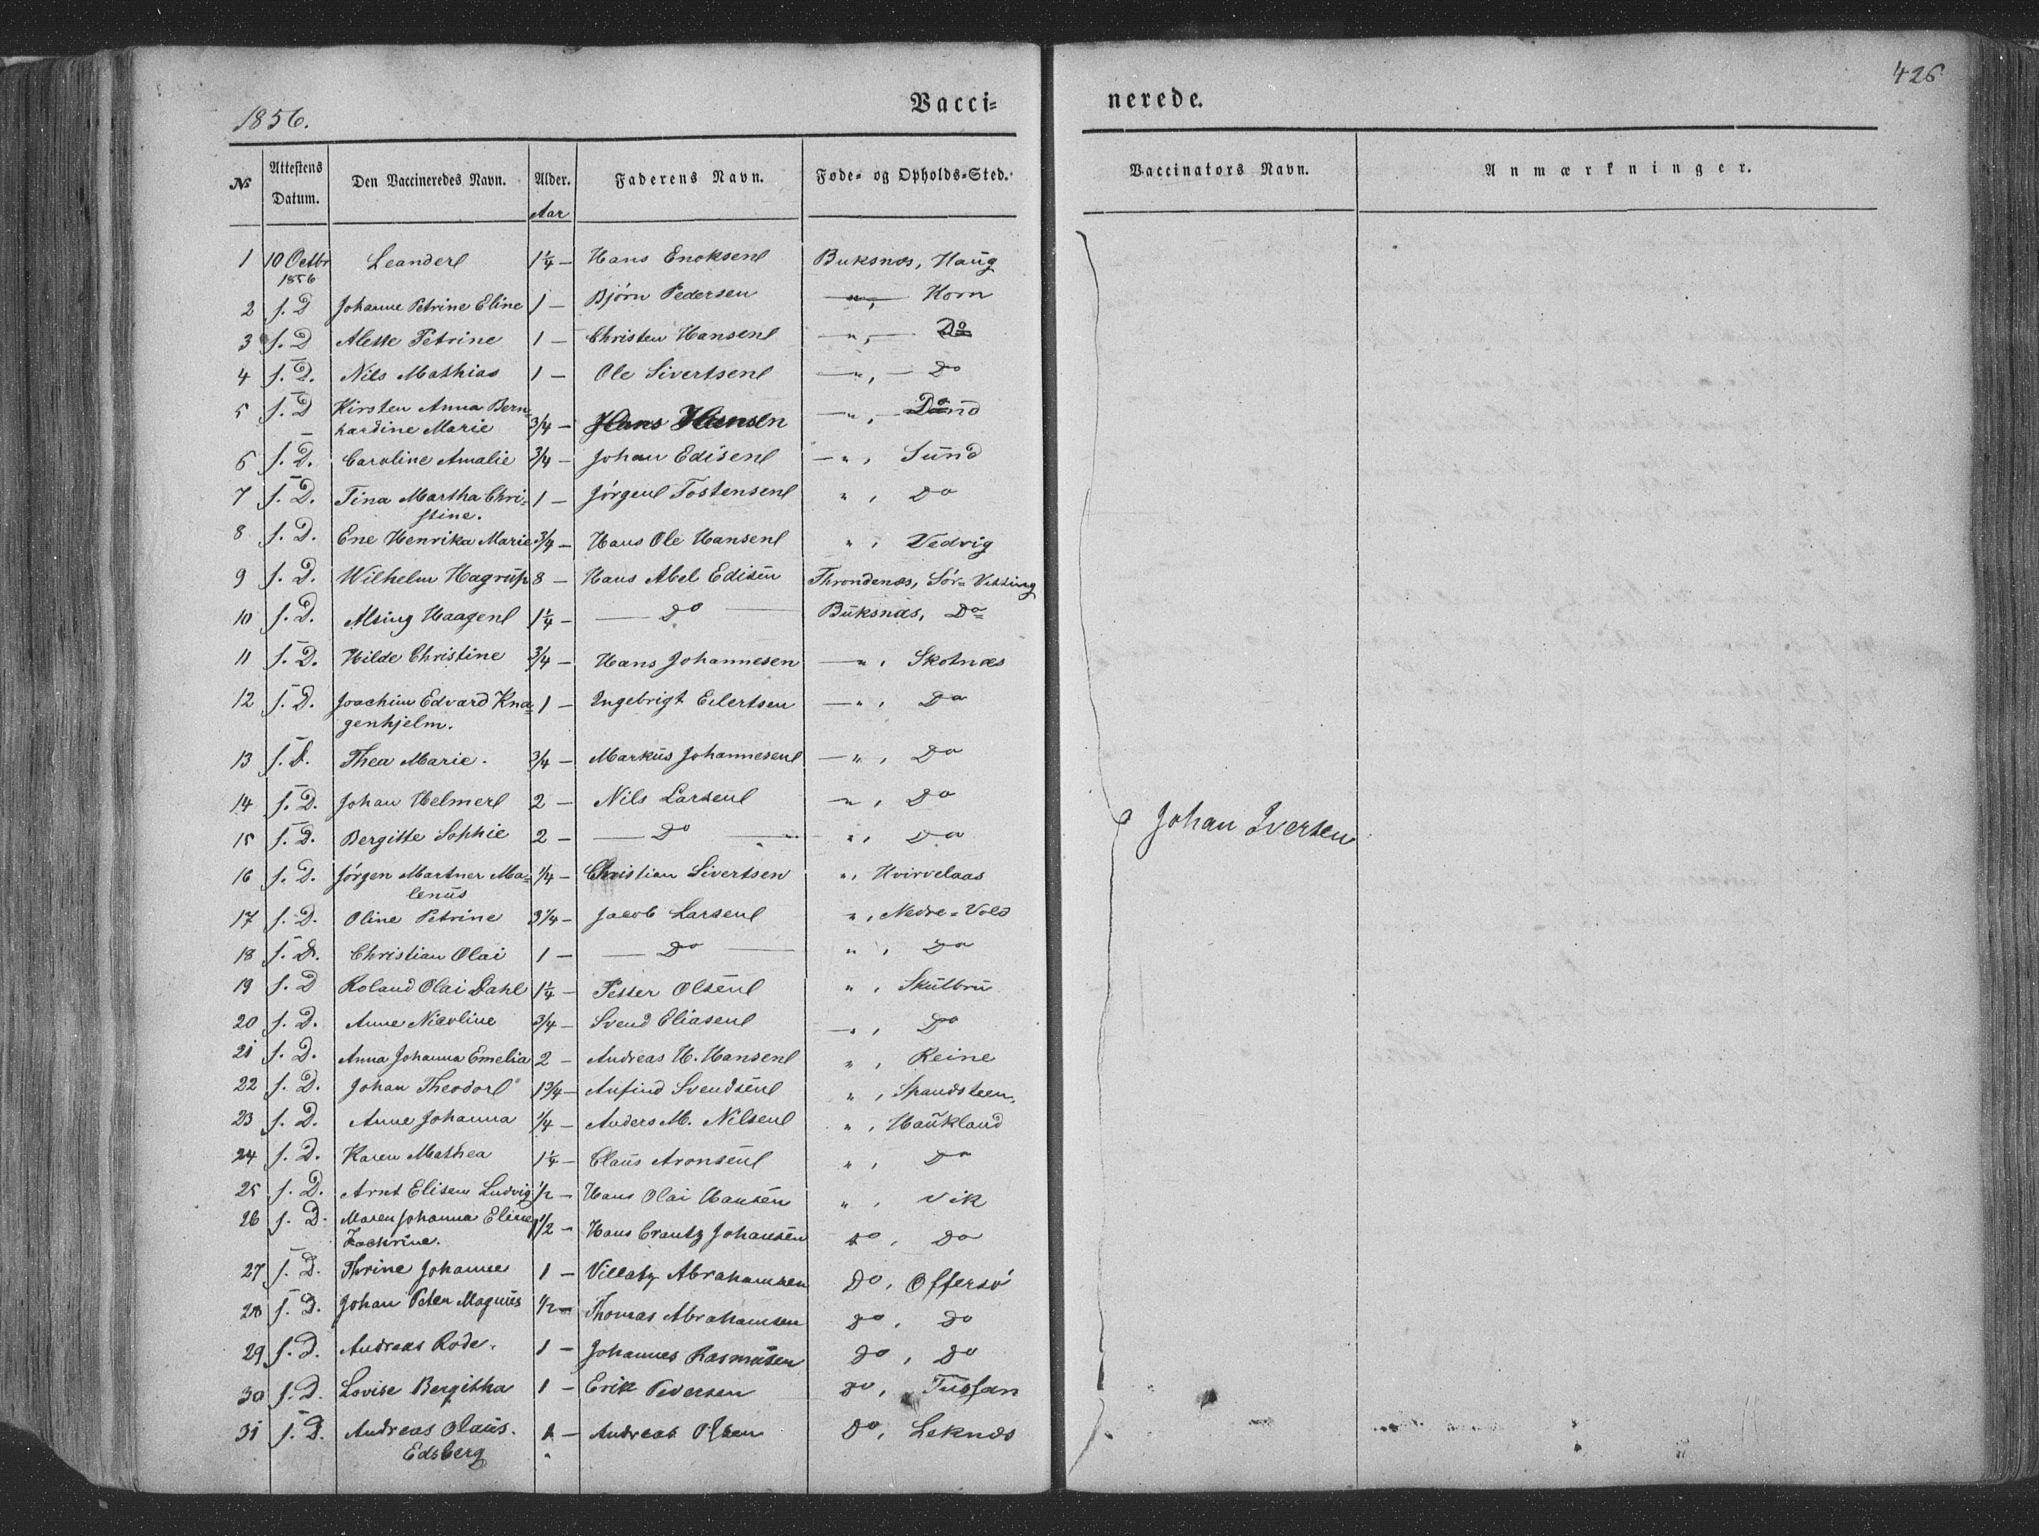 1856.
Vacci-
nerede.
426
No
Attestens Datum.
Den Vaccineredes Navn.
Alder.
Aar
Faderens Navn.
Føde- og Opholds-Sted.
Vaccinators Navn.
Anmærkninger.
1 10 Octbr 1856 Leander 1¼ – Hans Enoksen Buksnæs, Haug
2 s. D Johanne Petrine Eline 1 – Bjørn Pedersen — „ — Horn
3 s. D Alette Petrine 1 – Christen Hansen — „ — Do
4 s. D. Nils Mathias 1 – Ole Sivertsen — „ — Do
5 s. D Kirsten Anna Bern-
hardine Marie 3/4 – Hans Hansen — „ —
6 s. D. Caroline Amalie 3/4 – Johan Edisen — „ , Sund
7 s. D. Tina Martha Chri-
stine. 1 – Jørgen Tostensen „ , Do
8 s. D. Ene Henrika Marie 3/4 – Hans Ole Hansen „ , Vedvig
9 s. D. Wilhelm Hagrup 8 – Hans Abel Edisen Throndenæs, Sør-
10 s. D. Alsing Haagen 1¼ – — Do — Buksnæs, Do
11 s. D. Hilde Christine 3/4 – Hans Johannesen — „ , Skotnæs
12 s. D. Joachim Edvard Kna-
genhjelm. 1 – Ingebrigt Eilertsen — „ , Do
13 s. D. Thea Marie. 3/4 – Markus Johannesen — „ , Do
14 s. D. Johan Helmer 2 – Nils Larsen — „ , Do
15 s. D. Bergitte Sophie 2 – — Do — „ , Do
16 s. D. Jørgen Martner Ma-
lenus 1/4 – Christian Sivertsen „ , Hvirvelaas
17 s. D. Oline Petrine 3¼ – Jacob Larsen „ , Nedre-Vold
18 s. D. Christian Olai 1 – — Do — „ , Do
19 s. D Roland Olai Dahl 1¼ – Petter Olsen „ , Skulbru
20 s. D. Anne Nicoline 3/4 – Svend Eliasen — „ , Do
21 s. D. Anna Johanna Emelia 2 – Andreas H. Hansen „ , Reine
22 s. D. Johan Theodor 1¾ – Anfind Svendsen „ , Spandsteen.
23 s. D. Anne Johanna 1/4 – Anders M. Nilsen „ , Haukland
24 s. D. Karen Mathea 1¼ – Claus Aronsen „ , Do
25 s. D. Arnt Elisen Ludvig 1/2 – Hans Olai Hansen „ , Vik
26 s. D. Maren Johanna Eline
1/2 – Hans Crantz Johansen do, Do
27 s. D. Thrine Johanne 1 – Abrahamsen Do, Offersø
28 s. D. Johan Peter Magnus 1/2 – Thomas Abrahamsen do, Do
29 s. D. Andreas Rode. 1 – Johannes Rasmusen do, Do
30 s. D. Lovise Bergitha 1 – Erik Pedersen do,
31 s. D. Andreas Olaus.
Edsberg 1 – Andreas Olsen Do, Leknæs
Johan Iversen